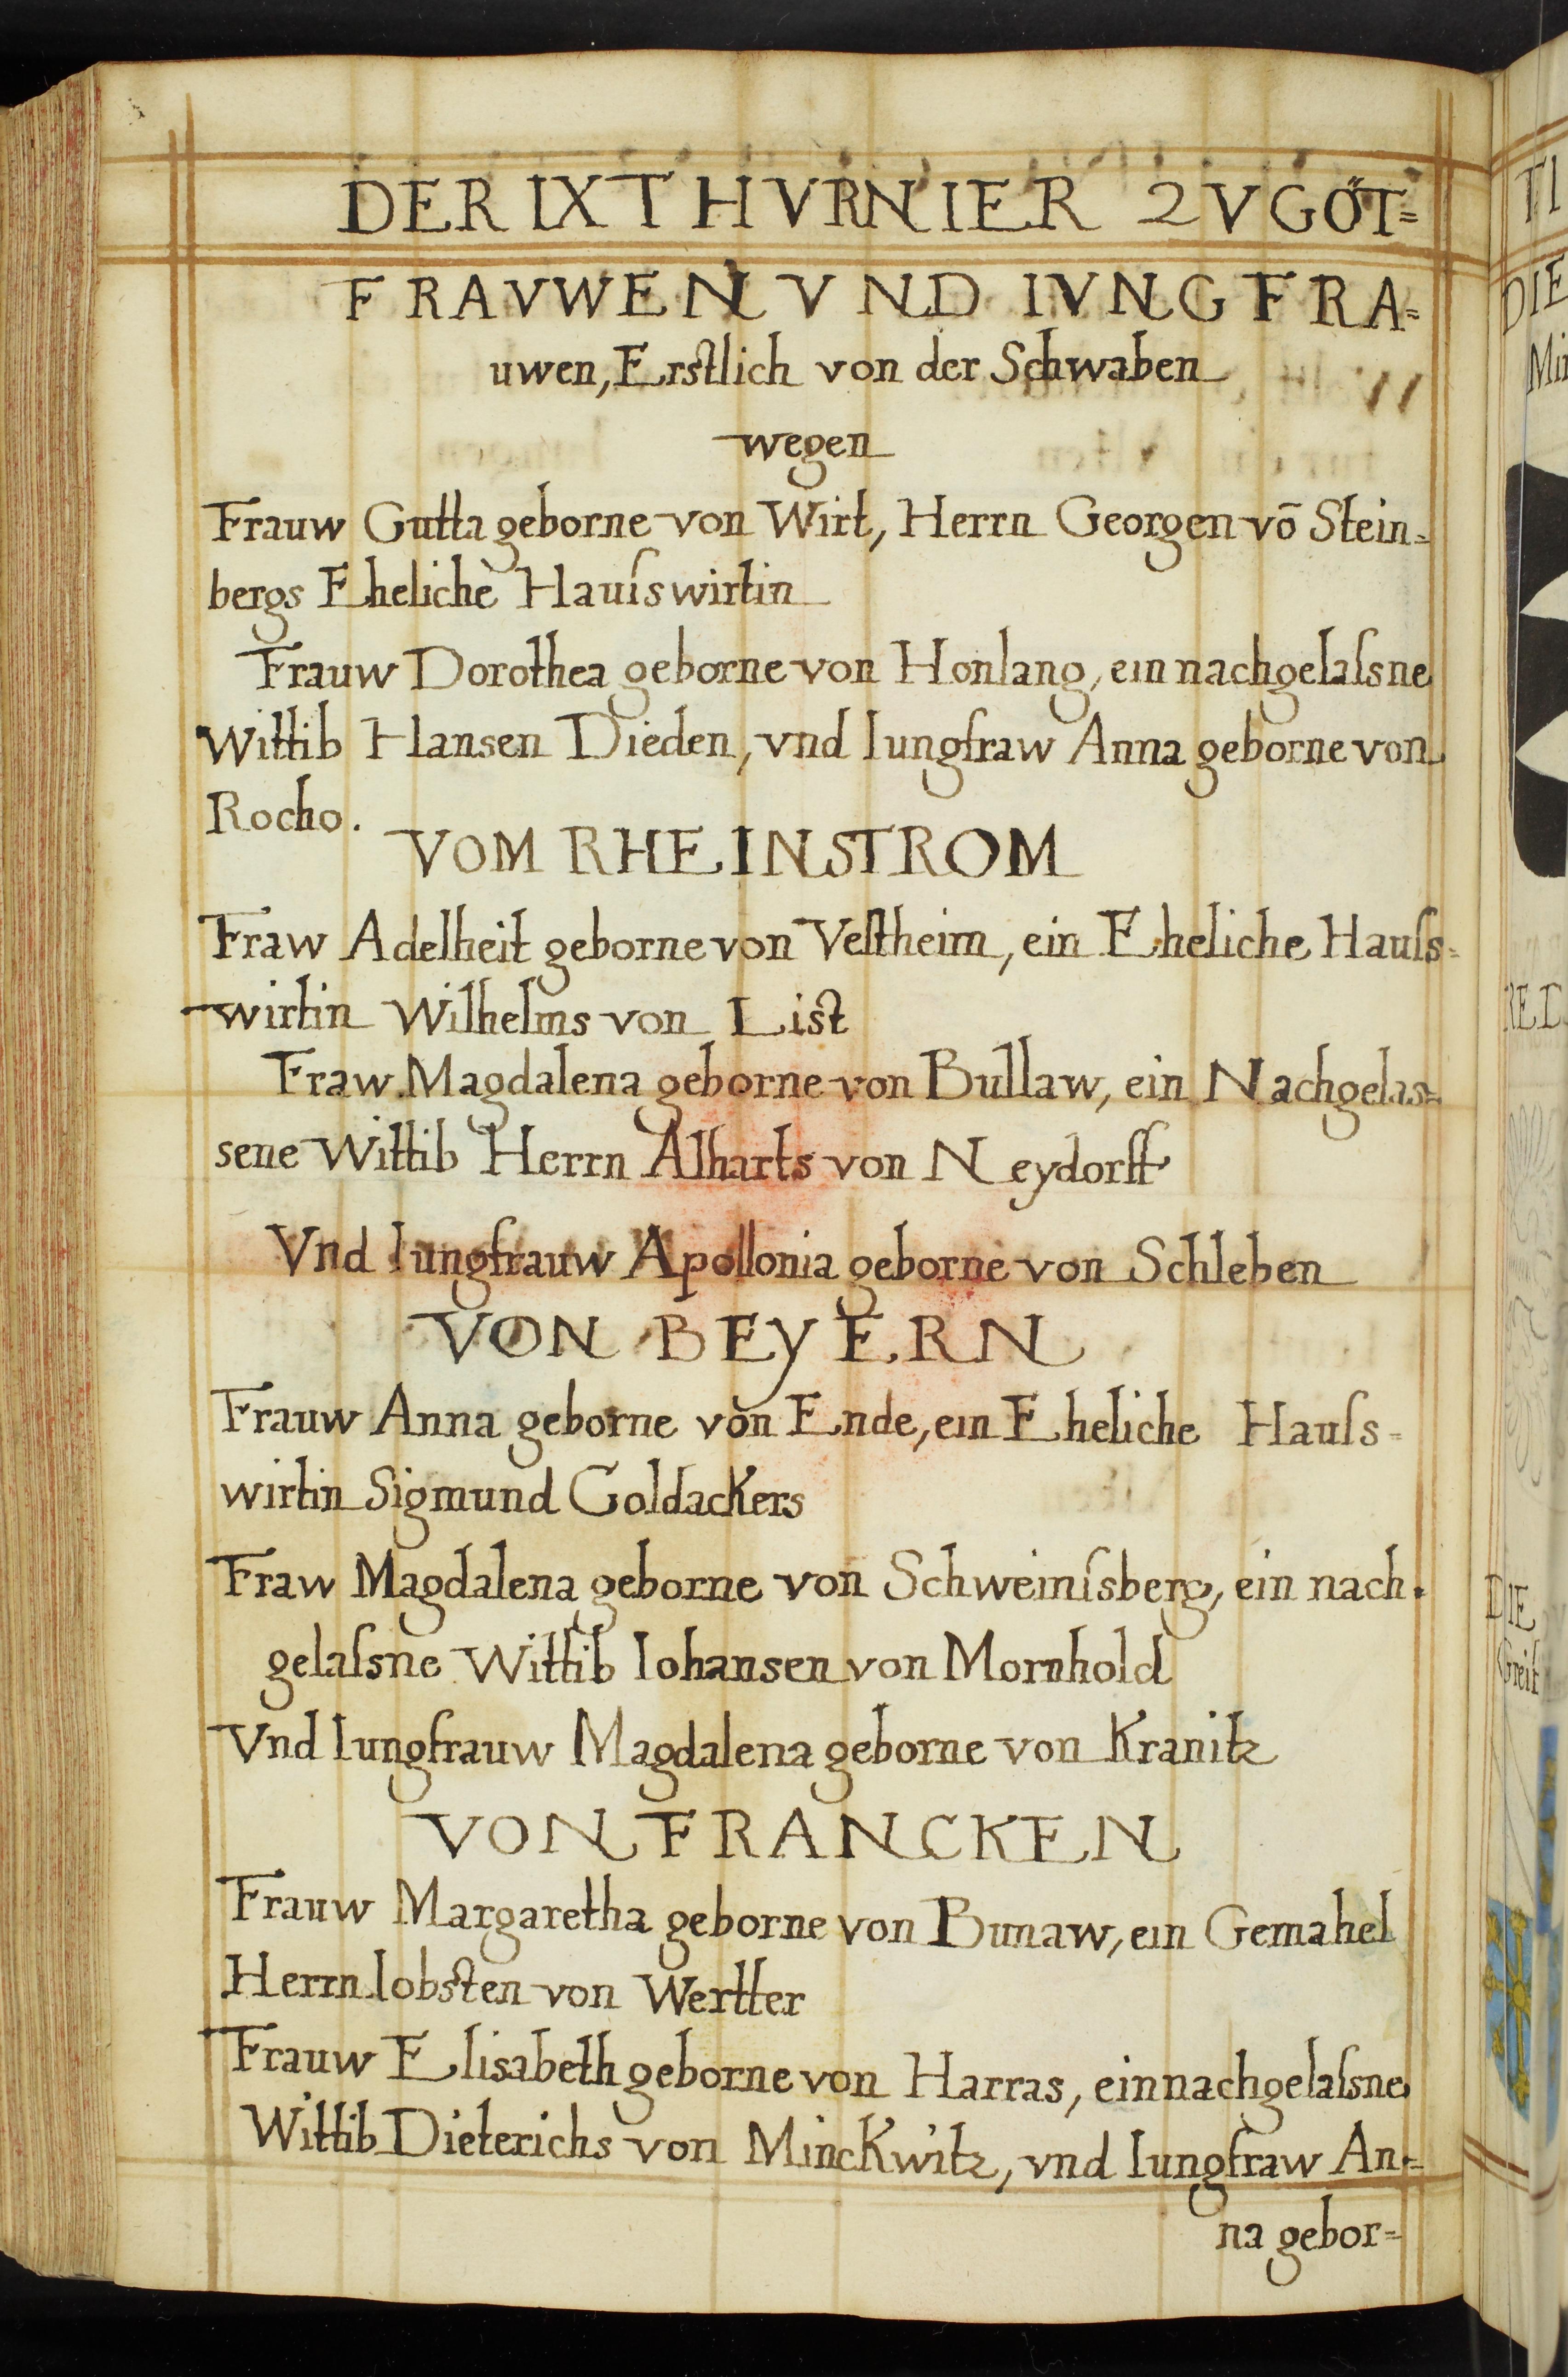 DER IX THVRNIER ZVGŐT=
FRAVWEN VND IVNGFRA=
uwen, Erstlich von der Schwaben
wegen
Frauw Gutta geborne von Wirt, Herrn Georgen vō Stein=
bergs Eheliche Hauſswirtin
Frauw Dorothea geborne von Honlang, ein nachgelaſsne
Wittib Hansen Dieden, vnd Iungfraw Anna geborne von
Rocho.
VOM RHEINSTROM
Fraw Adelheit geborne von Veſtheim, ein Eheliche Hauſs=
wirtin Wilhelms von List
Fraw Magdalena geborne von Bullaw, ein Nachgelas=
sene Wittib Herrn Alharts von Neydorff
Vnd Iungfrauw Apollonia geborne von Schleben
VON BEYERN
Frauw Anna geborne von Ende, ein Eheliche Hauſs=
wirtin Sigmund Goldackers
Fraw Magdalena geborne von Schweinſsberg, ein nach=
gelaſsne Wittib Iohansen von Mornhold
Vnd Iungfrauw Magdalena geborne von Kranitz
VON FRANCKEN
Frauw Margaretha geborne von Bunaw, ein Gemahel
Herrn Iobsten von Wertter
Frauw Elisabeth geborne von Harras, ein nachgelaſsne
Wittib Dieterichs von Minckwitz, vnd Iungfraw An=
na gebor=
TI
DIE
Mi
DIE
Greif